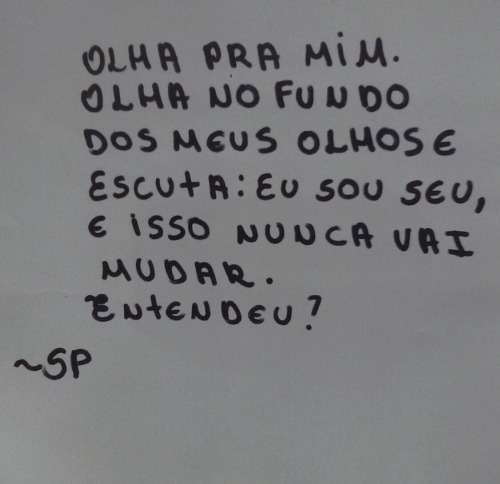 OLHA PRA MIM.
OLHA NO FUNDO
DOS MEUS OLHOS E
ESCUTA: EU SOU SEU,
E ISSO NUNCA VAI
MUDAR.
ENTENDEU?
~SP